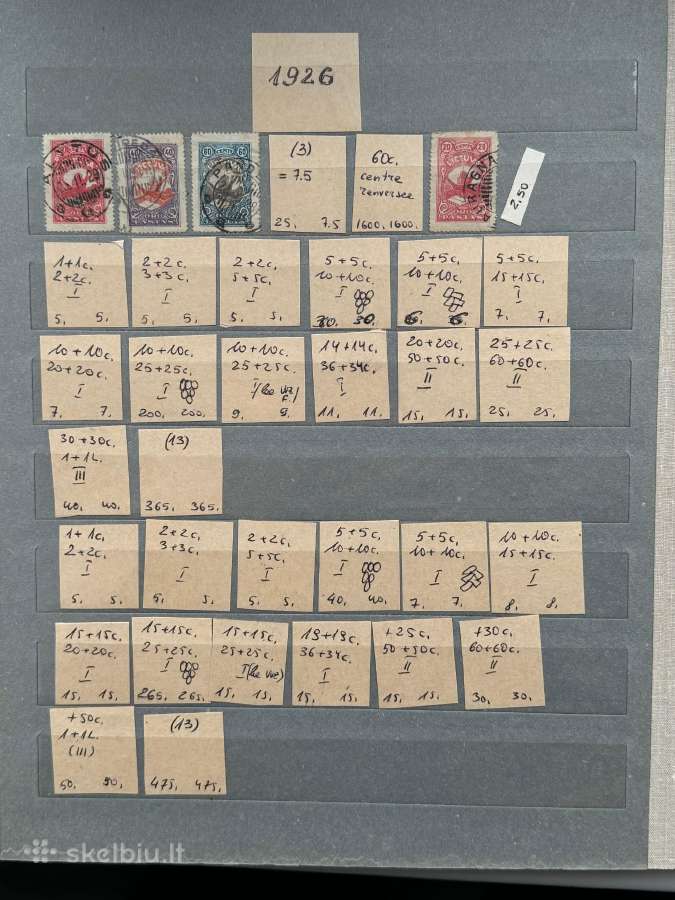 1926
ALYTUS
20 CENTŲ 20
LIETUVA
PAŠTAS
40 CENTŲ 40
PAŠTAS
60 CENTŲ 60
PAŠTAS
(3)
= 7.5
25, 7.5
60c,
centre
renversée
1600, 1600,
20 CENTŲ 20
LIETUVA
RAGNA
PAŠTAS
2,50
1+1c,
2+2c,
I
5, 5,
2+2c,
3+3c,
I
5, 5,
2+2c,
5+5c,
I
5, 5,
5+5c,
10+10c,
I
30, 30,
5+5c,
10+10c,
I
6, 6,
5+5c,
15+15c,
I
7, 7,
10+10c,
20+20c,
I
7, 7,
10+10c,
25+25c,
I
200, 200,
10+10c,
25+25c
I
9, 9,
14+14c,
36+34c,
I
11, 11,
20+20c,
50+50c,
II
15, 15,
25+25c,
60+60c,
II
25, 25,
30+30c,
1+1L.
III
40, 40,
(13)
365, 365,
1+1c,
2+2c,
I
5, 5,
2+2c,
3+3c,
I
5, 5,
2+2c,
5+5c,
I
5, 5,
5+5c,
10+10c,
I
40, 40,
5+5c,
10+10c,
I
7, 7,
10+10c,
15+15c,
I
8, 8,
15+15c,
20+20c,
I
15, 15,
15+15c,
25+25c,
I
265, 265,
15+15c,
25+25c,
I
15, 15,
36+34c,
I
15, 15,
+25c,
50+50c,
II
15, 15,
+30c,
60+60c,
II
30, 30,
+50c,
1+1L.
(III)
50, 50,
(13)
475, 475,
skelbiu.lt